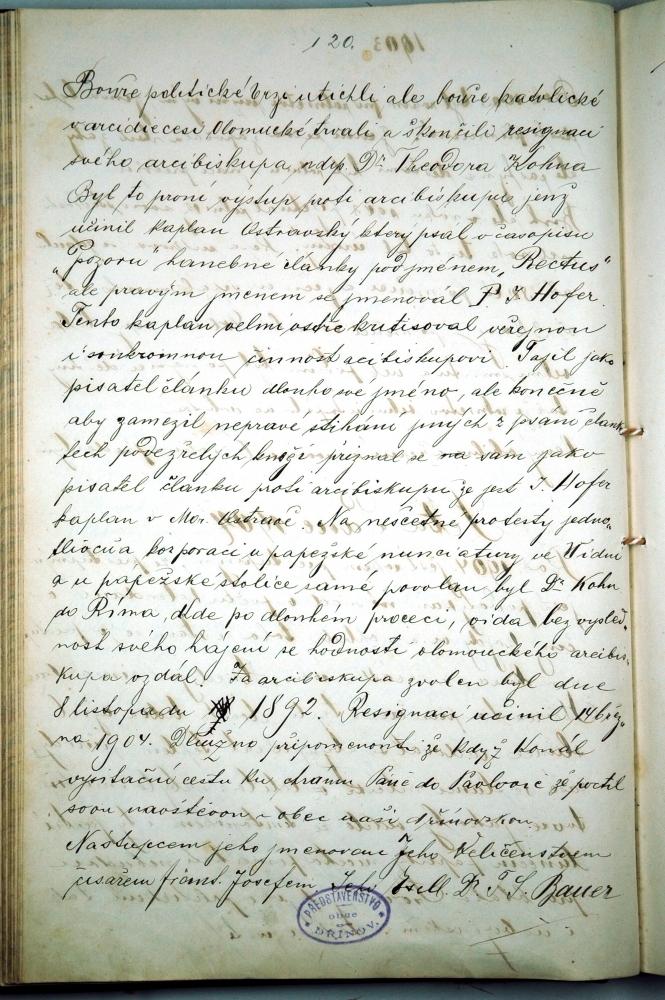 120.
Bouře politické brzi utichli ale bouře katolické
v arcidiecesi Olomucké trvali a skončili resignací
svého arcibiskupa ndp. Dr Theodora Kohna
Byl to první výstup proti arcibiskupu jenž
učinil kaplan Ostravský který psal v časopisu
"Pozoru" hanebné články pod jménem „Rectus"
ale pravým menem se jmenovál P. J Hofer.
Tento kaplan velmi ostře kritisoval veřejnou
i soukromnou činnost acibiskupovi. Tajil jako
pisatel článku dlouho své jméno, ale konečně
aby zamezil nepravé stíhání jiných z psání člank
tech podezřelých kněží přiznal se na sám jako
pisatel članku proti arcibiskupu že jest J. Hofer
kaplan v Mor. Ostravě. Na nesčetné protesty jedno-
tlivců a korporací u papežské nunciatury ve Widni
a u papežske stolice samé povolan byl Dr Kohn
do Říma, kde po dlouhém proceci, vida bez vysled-
nost svého hájení se hodnosti olomouckého arcibis-
kupa vzdál. Za arcibiskupa zvolen byl dne
8 listopadu 1892. Resignaci učinil 14 břez-
na 1904. Dlužno připomenouti že když konál
vysitační cestu ku chrámu Páně do Pavlovic že poctil
svou navštěvou i obec naši dřínovskou.
Nástupcem jeho jmenovan Jeho Veličenstvem
císařem Frant. Josefem. Jeho Excll. Dr F. S. Bauer
PŘEDSTAVENSTVO
obce
DŘÍNOV.